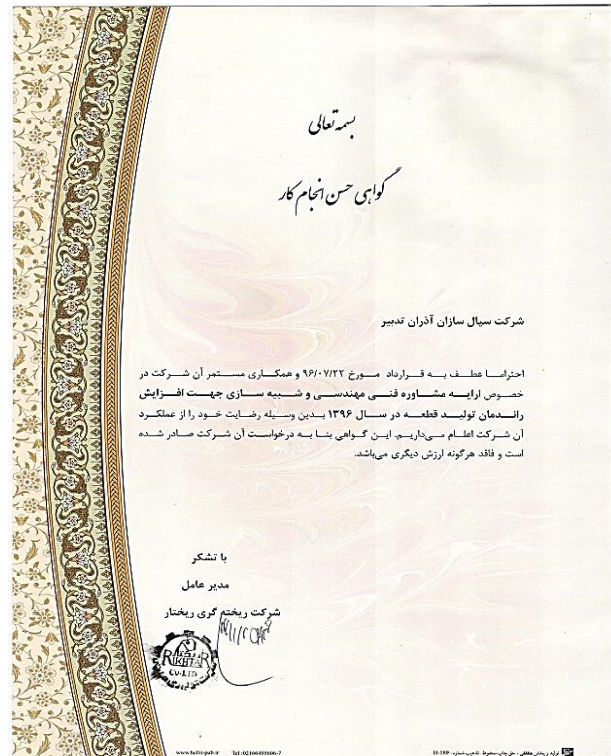 بسمه تعالی
گواهی حسن انجام کار
شرکت سیال سازان آذران تدبیر
احتراما عطف به قرارداد مورخ ۹۶/۰۷/۲۲ و همکاری مستمر آن شرکت در
خصوص ارایه مشاوره فنی مهندسی و شبیه سازی جهت افزایش
راندمان تولید قطعه در سال ۱۳۹۶ بدین وسیله رضایت خود را از عملکرد
آن شرکت اعلام می‌داریم. این گواهی بنا به درخواست آن شرکت صادر شده
است و فاقد هرگونه ارزش دیگری می‌باشد.
با تشکر
مدیر عامل
شرکت ریخته گری ریختار
RIKHTAR
CO.LTD
تولید و پخش حقیقی - حق چاپ محفوظ تذهیب شماره: H-189 Tel:02166485606-7